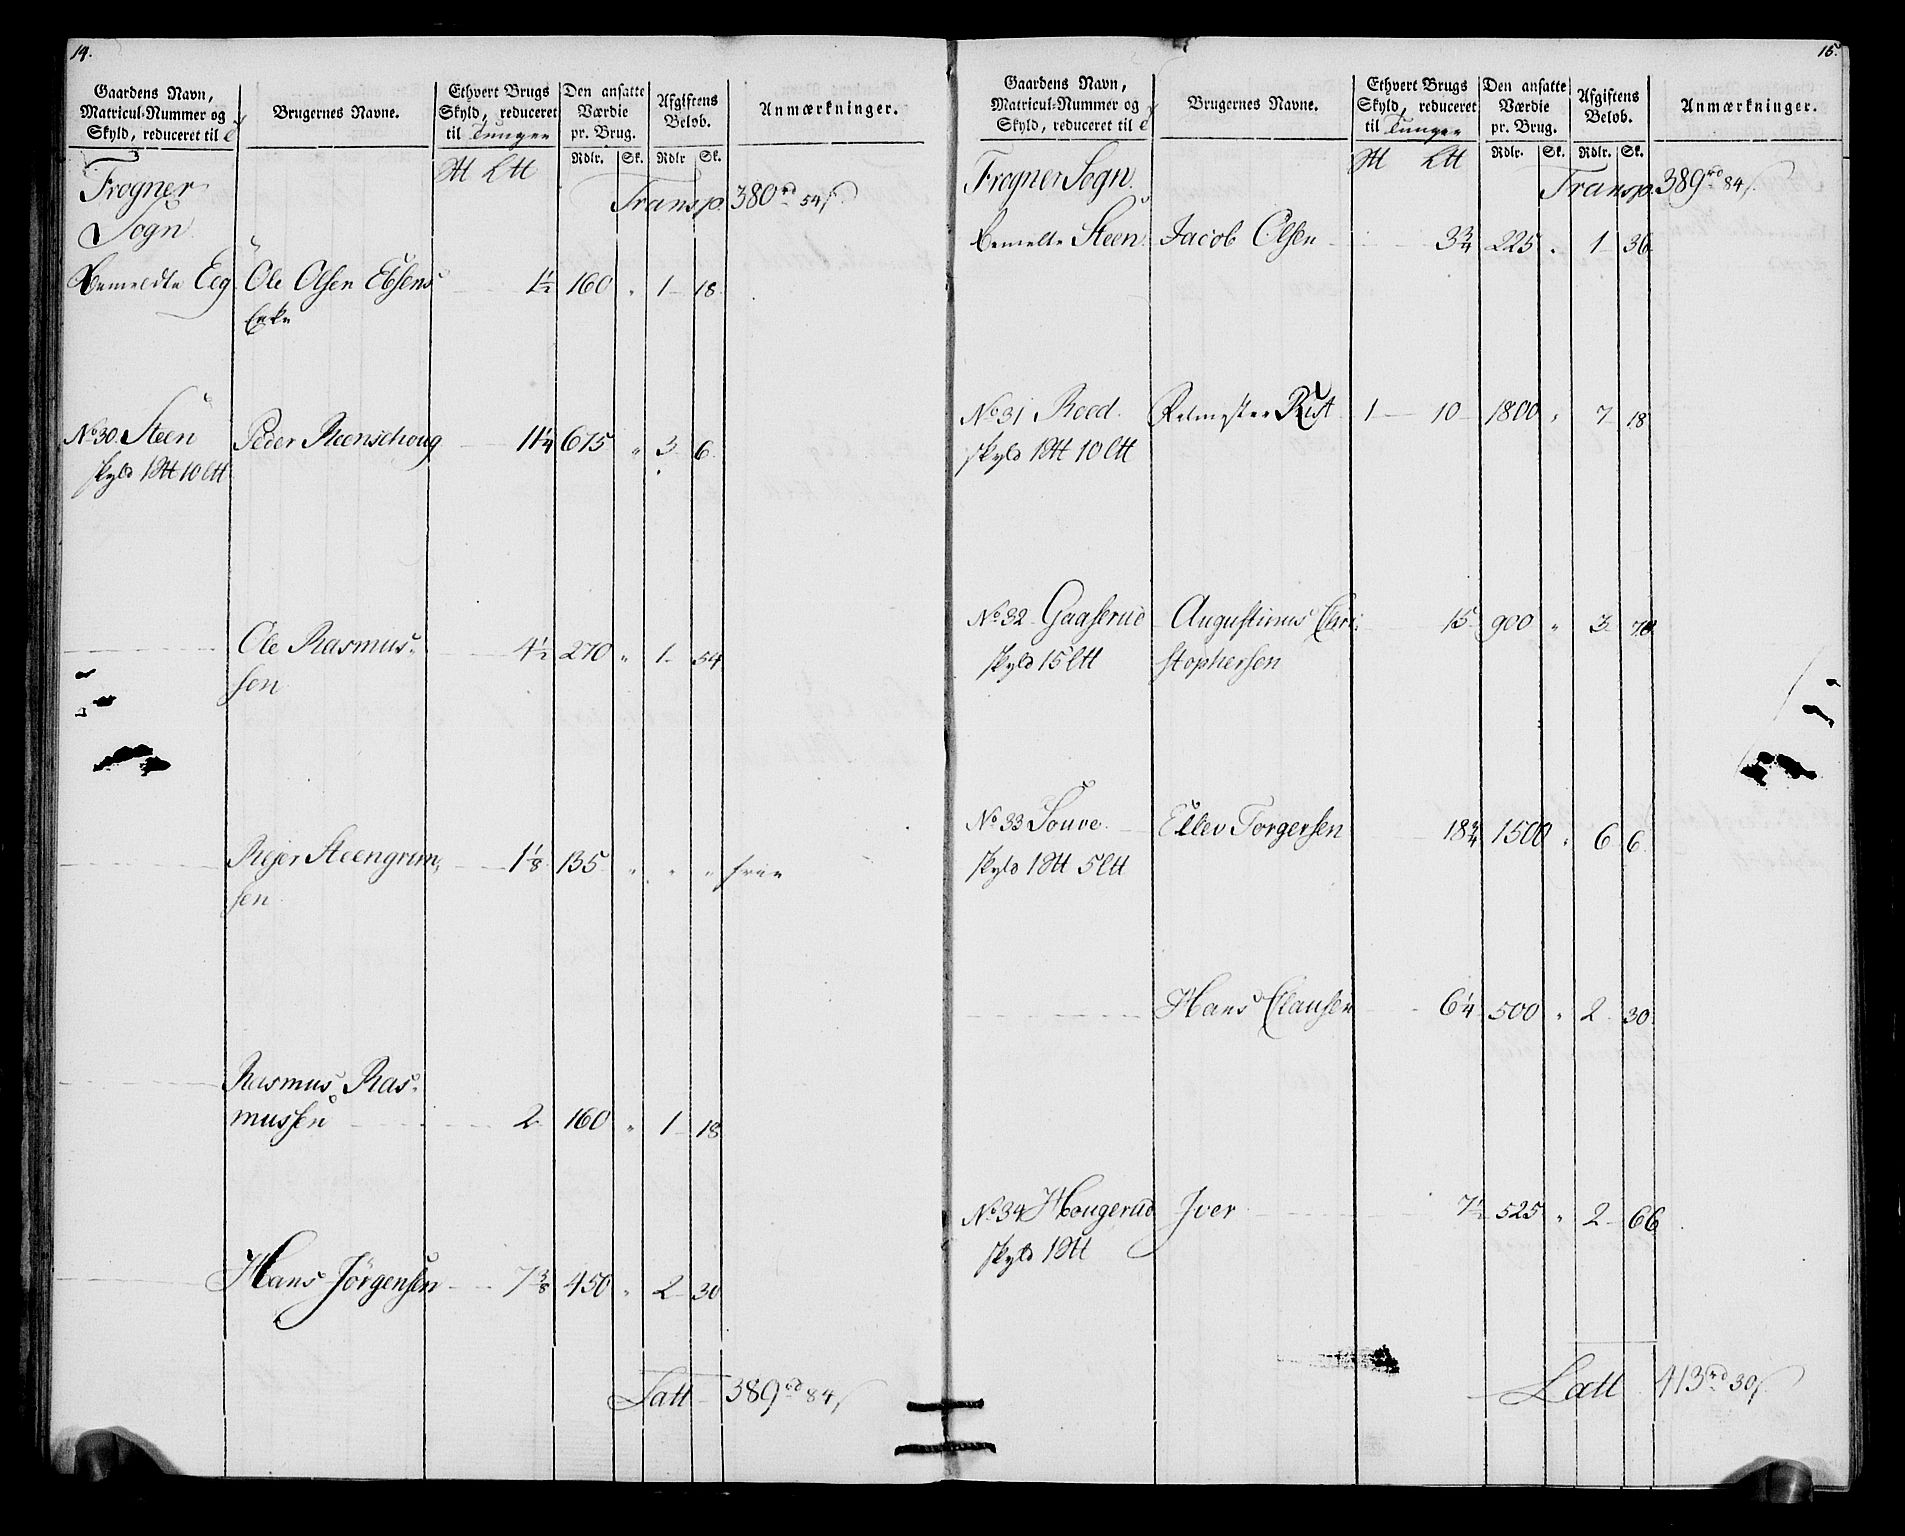 14.
Gaardens Navn,
Matricul-Nummer og
Skyld, reduceret til
Brugernes Navne.
Ethvert Brugs
Skyld, reduceret
til Tunger
Den ansatte
Værdie
pr. Brug.
Afgiftens
Beløb.
Anmærkninger.
Rdlr. Sk. Rdlr Sk.
Frogner
Sogn
Transp. 380 rd 54 s
Bemeldte Eeg Ole Olsen Ebsens 1½ 160 " 1 18
Enke
No 30. Steen Peder Steenschoug 11¼ 675 " 3 6.
skyld 1 10
Ole Rasmus- 4½ 270 " 1 54
sen
Rejer Steengrim- 1⅛ 135 " " " frie
sen.
Rasmus Ras-
mussen 2 160 " 1 18
Hans Jörgensen 7⅜ 450 " 2 30
Latt 389 rd 84 s
15.
Gaardens Navn,
Matricul-Nummer og
Skyld, reduceret til
Brugernes Navne.
Ethvert Brugs
Skyld, reduceret
til Tunger
Den ansatte
Værdie
pr. Brug.
Afgiftens
Beløb.
Anmærkninger.
Rdlr. Sk. Rdlr. Sk.
Frogner Sogn.
Transp. 389 rd 84 s.
bemelte Steen Jacob Olsen 3¾ 225 " 1 36
No 31 Reed. Rist 1 10 1800 " 7 18
skyld 1 10
No 32 Gaaserud Augustinus Chri- 15 900 " 3
skyld 15 stophersen
No 33 Souve. Ellev Torgersen 18¾ 1500 " 6 6
skyld 1 5
Hans Clausen 6¼ 500 " 2 30
No 34 Hougerud Iver 7½ 525 " 2 66
skyld 1
Latt 413 rd 30 s.